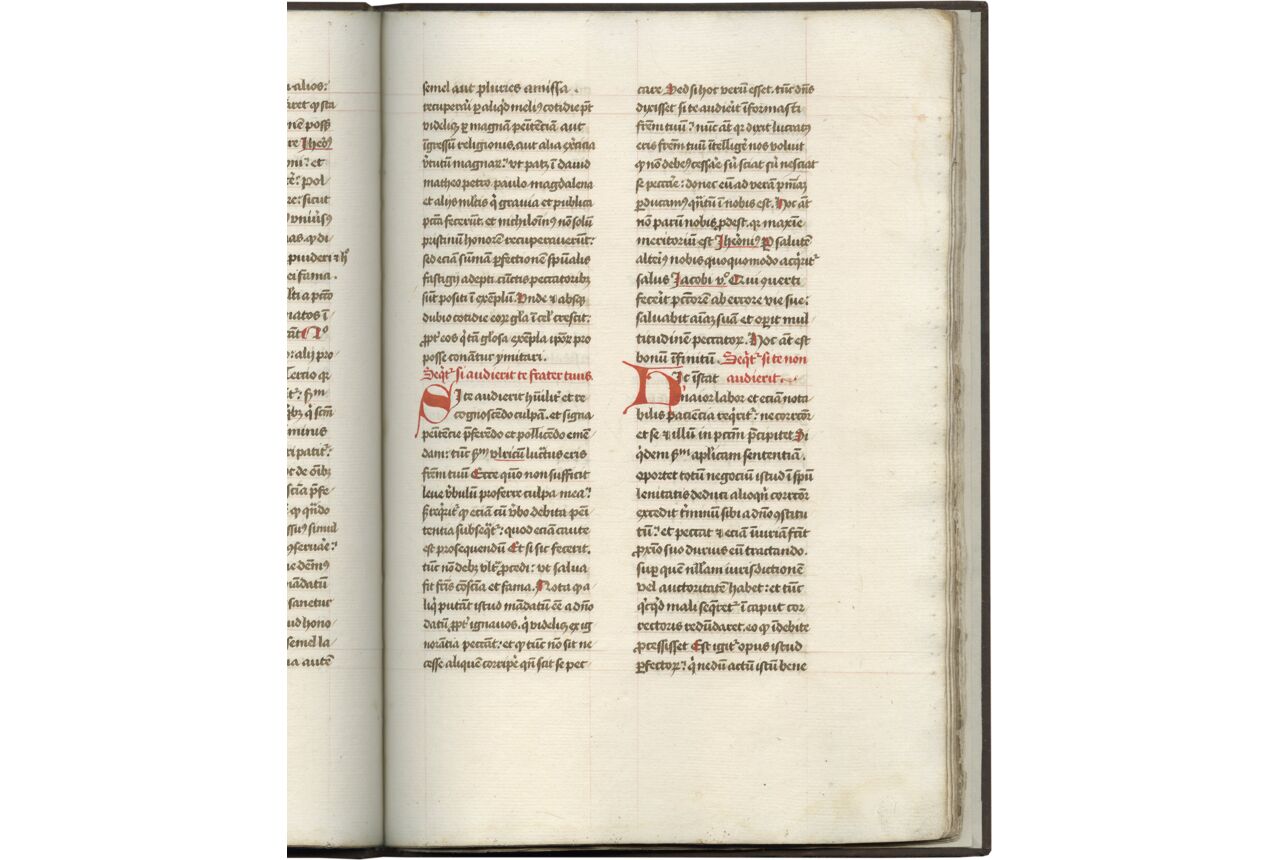 n alios:
aret qͥ sta
ne poss̄
re Ihero⁹
oni: et
: Pol
re: sicut
vniūs⁹
as. ꝙ di
p̄uideri ⁊ h̄
ei fama.
lti a pctō
natos ī
N°
: alij pro
Tercio qꝛ
minus
ri patit᷑:
ꝙ qn̄do
ssi⁹ simul
⁹seruaē:
e dēm⁹
mādatū
sanetur
ud hono
semel la
na autē
semel aut pluries amissa.
recuperari p̲ aliqͥd meli⁹ cotidie pn̄t
videlicꝫ p̲ magnā pēnitēciā aut
īgressū religionis, aut alia ex̄cicia
v̓tutū magnaꝝ: vt patꝫ ī dauid
matheo petro. paulo. magdalena
et alijs ml̓tis qͥ grauia et publica
pctā fecerūt. et nichilomī⁹ non solū
pristinū honorē recuperauerūt:
sed eciā sūmā p̲fectionē sp̄ualis
fastigij adepti. cūctis peccatoribꝫ
sūt positi ī exēplū. Vnde ⁊ absqꝫ
dubio cotidie eoꝝ glīa ī cel̓ crescit:
ꝓpt̓ eos qͥ tā gl̓osa exēpla ip̄oꝝ pro
posse conātur ymitari.
Seqͥt᷑ si audierit te frater tuus.
SI te audierit hūilit̓ et re
cognoscēdo culpā. et signa
pēnitēcie p̄ferēdo et pollicēdo emē
dam: tūc scd̄m vlricū lucᷓtus eris
frēm tuū Ecce quō non sufficit
leue v̓bulū proferre culpa mea:
s̓ req̓rit᷑ ꝙ eciā cū v̓bo debita pēni
tentia subseqͥt᷑: quod eciā caute
est prosequendū Et si sic fecerit.
tūc nō debꝫ vlt̓ ꝓcedi: vt salua
sit fr̄is cōsciā et fama. Nota ꝙ a
liqͥ putāt istud mādatū eē a dn̄o
datū ꝓpt̓ ignauos. qͥ videlicꝫ ex ig
norātia peccāt: et ꝙ tūc nō sit ne
cesse aliquē corripē qn̄ scit se pec
care Sed si hoc verū esset. tūc dn̄s
dixisset si te audiēit īformasti
frēm tuū: nūc aūt qꝛ dixit lucrat⁹
eris frēm tuū ītelligē nos voluit
ꝙ nō debe⁹ cessare siū sciat siū nesciat
se peccare: donec eū ad verā pn̄iaꝫ
p̲ducam⁹ qn̄tū ī nobis est. Hoc aūt
non parū nobis p̲dest. qꝛ maxīe
meritoriū est Iheroni⁹ Per salutē
alteri⁹ nobis quoquomodo acqͥrit᷑
salus Iacobi v°. Qui ⁹uerti
fecerit pctōrem ab errore vie sue:
saluabit aīaꝫ suā et op̲it mul
titudinē peccatoꝝ. Hoc aūt est
bonū īfinitū. Seqͥt᷑ si te non
HIc īstat audierit.
maior labor et eciam nota
bilis paciencia req̓rit᷑: ne corrcōr
et se ⁊ illū in pctm̄ p̄cipitet Si
qͥdem scd̄m apl̓icam sententiā.
oportet totū negociū istud ī spū
lenitatis deduci alioqn̄ corrcōr
excedit t̓minū sibi a dn̄o ⁹stitu
tū: et peccat ⁊ eciā īiuriā facit
ꝓxīo suo durius eū tractando.
sup̲ quem nllam iurisdictionē
vel auctoritatē habet: et tūc
qͥcqͥd mali seqͥret᷑ ī caput cor
rectoris redūdaret. eo ꝙ īdebite
ꝓcessisset Est igit᷑ opus istud
p̲fectoꝝ: qͥ nedū actū istū bene